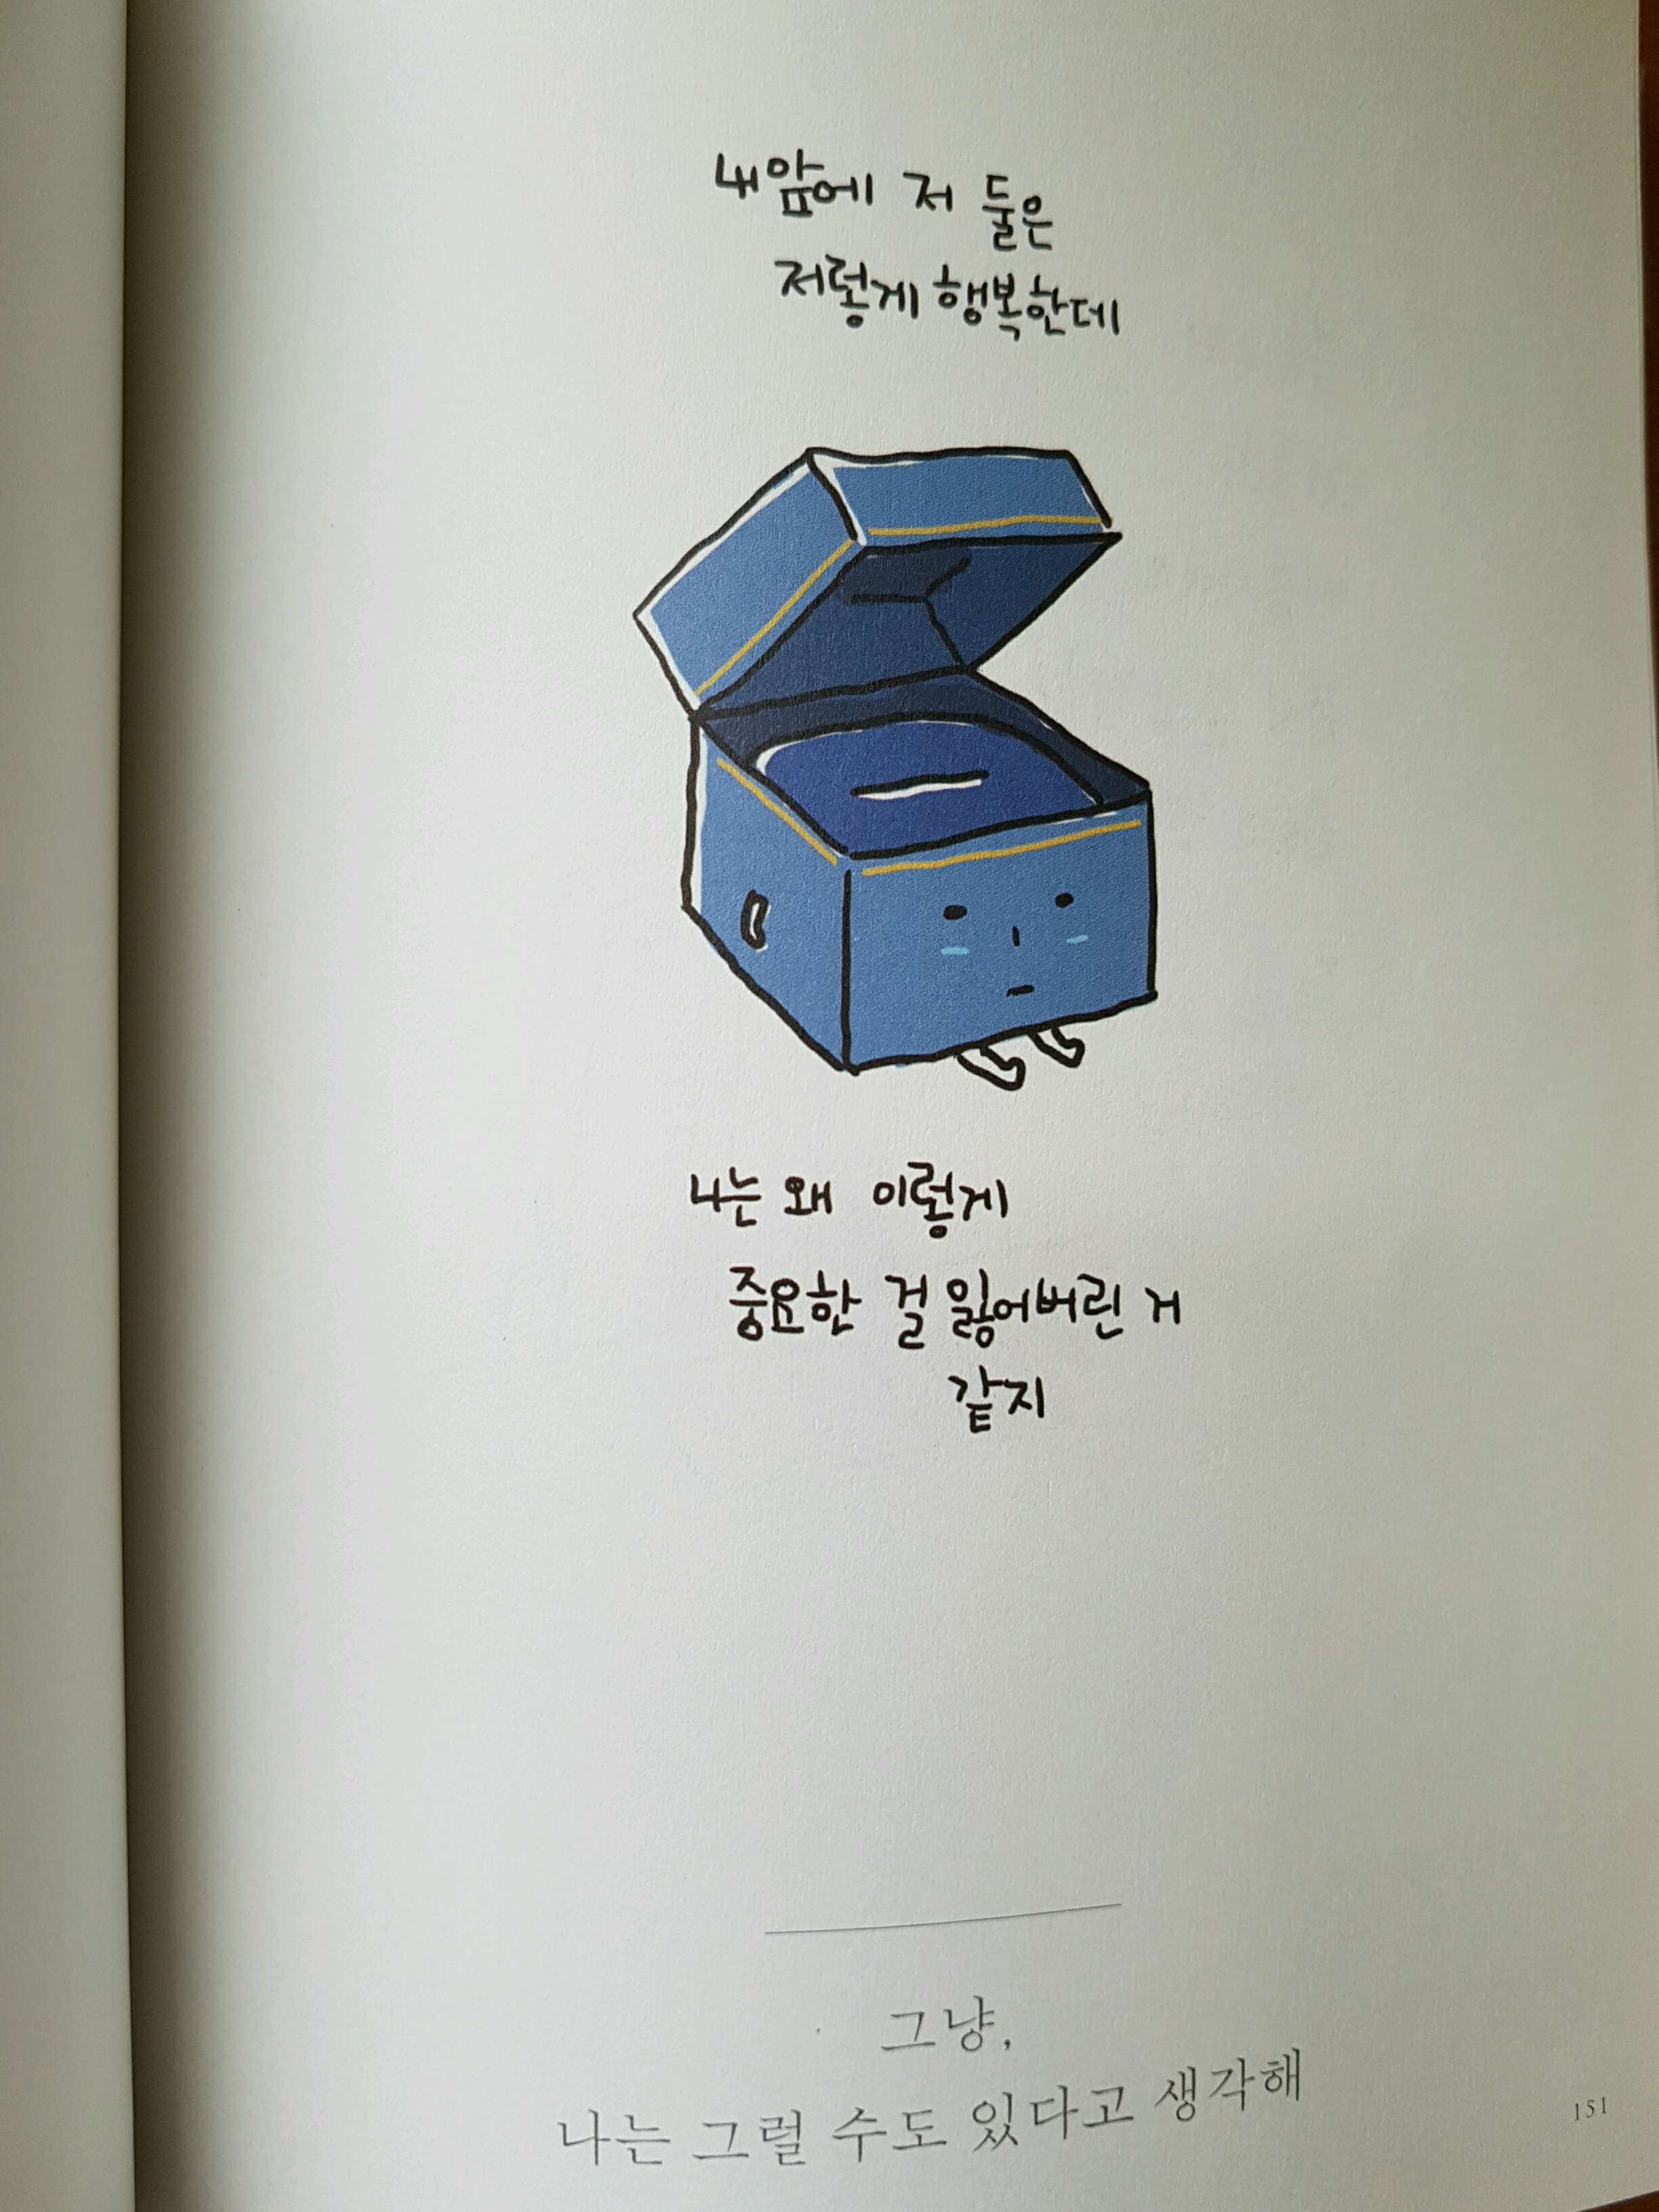 내 앞에 저 둘은
저렇게 행복한데
나는 왜 이렇게
중요한 걸 잃어버린 거
같지
그냥,
나는 그럴 수도 있다고 생각해
151